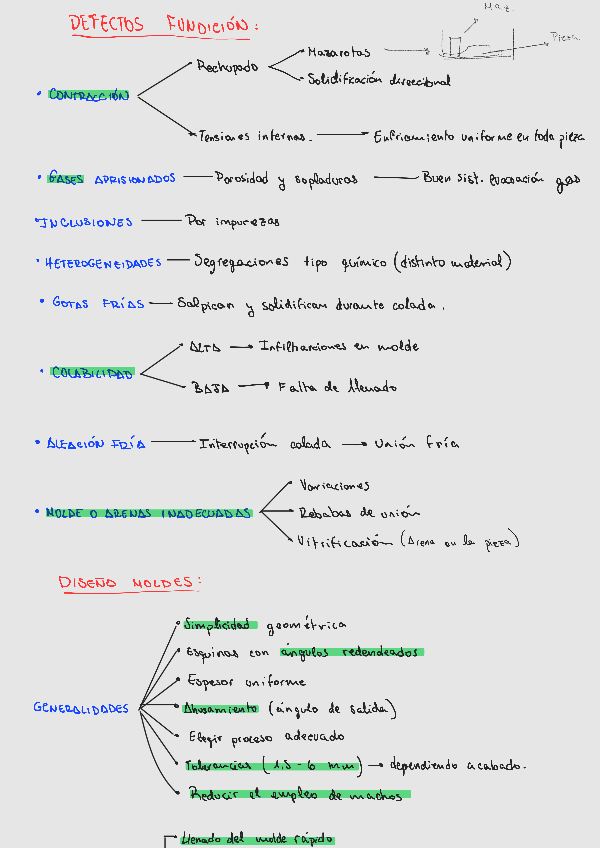 DEFECTOS FUNDICIÓN:
Maz.
Pieza
Rechupado
Mazarotas
Solidifzación direccional
• CONTRACCIÓN
Tensiones internas. Enfriamiento uniforme en toda pieza
• GASES APRISIONADOS Porosidad y sopladuras Buen sist. evacuación gas
• INCLUSIONES Por impurezas
• HETEROGENEIDADES Segregaciones tipo químico (distinto material)
• GOTAS FRÍAS Salpican y solidifican durante colada.
• COLABILIDAD
ALTA Infiltraciones en molde
BAJA Falta de llenado
• ALEACIÓN FRÍA Interrupción colada Unión fría
• MOLDE O ARENAS INADECUADAS
Variaciones
Rebabas de unión
Vitrificación (Arena en la pieza)
DISEÑO MOLDES:
GENERALIDADES
Simplicidad geométrica
Esquinas con ángulos redendeados
Espesor uniforme
Ahusamiento (ángulo de salida)
Elegir proceso adecuado
Tolerancias (1,5 - 6 mm) dependiendo acabado.
Reducir el empleo de machos
Llenado del molde rápido